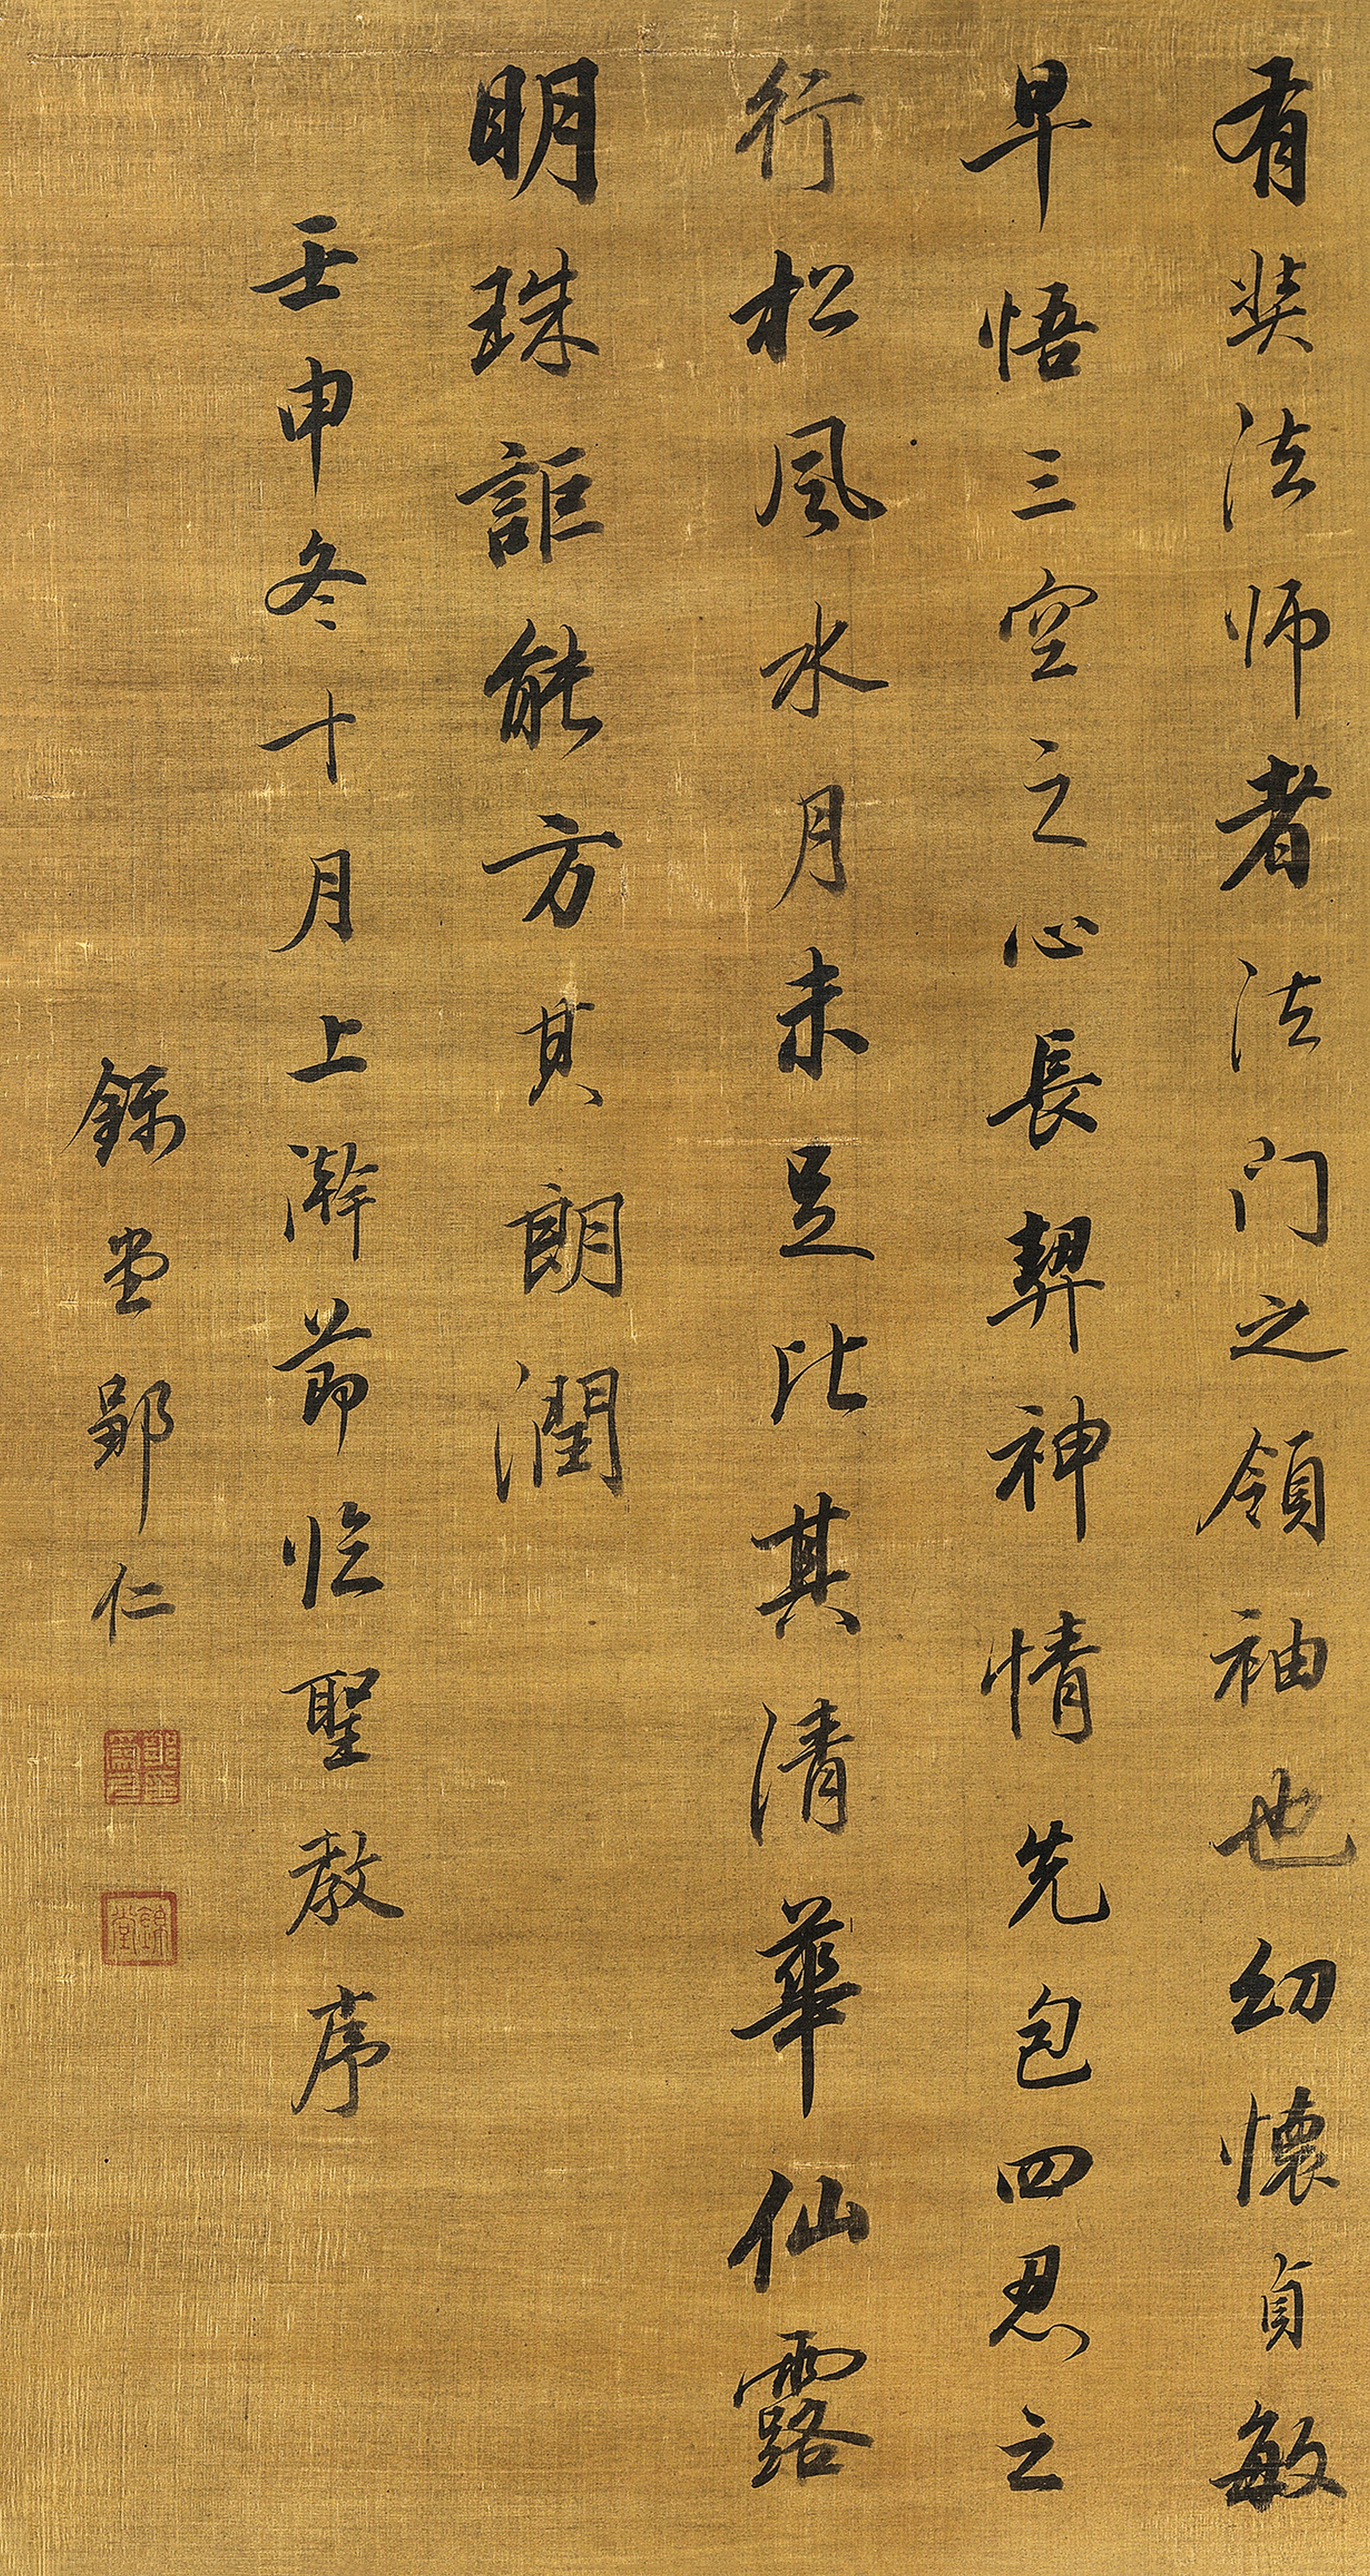 有奘法师者法门之领袖也幼懷貞敏
早悟三空之心長契神情先包四忍之
行松風水月未足比其清華仙露
明珠詎能方其朗潤
壬申冬十月上澣節临聖教序
堂鄖仁